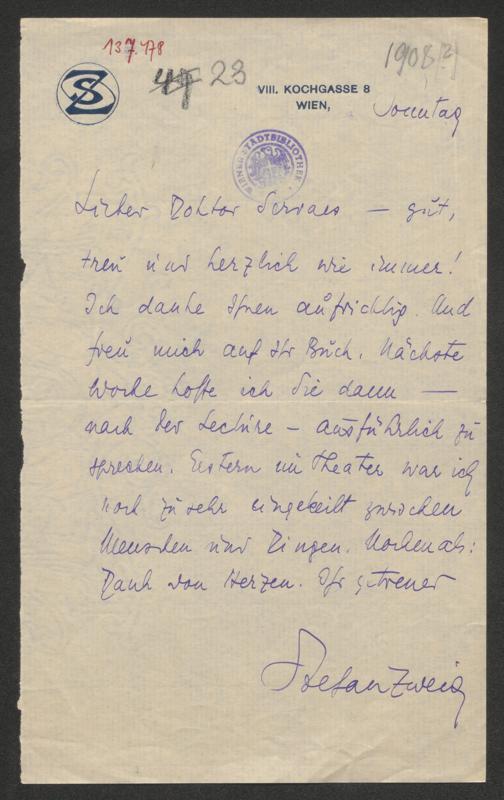 137.178
47 23
1908?]
SZ
VIII. KOCHGASSE 8
WIEN,
Sonntag
WIENER STADTBIBLIOTHEK
Lieber Doktor Servaes — gut,
treu und herzlich wie immer!
Ich danke Ihnen aufrichtig. Und
freu mich auf Ihr Buch. Nächste
Woche hoffe ich Sie dann —
nach der Lectüre – ausführlich zu
sprechen. Gestern im Theater war ich
noch zu sehr eingekeilt zwischen
Menschen und Dingen. Nochmals:
Dank von Herzen. Ihr getreuer
Stefan Zweig